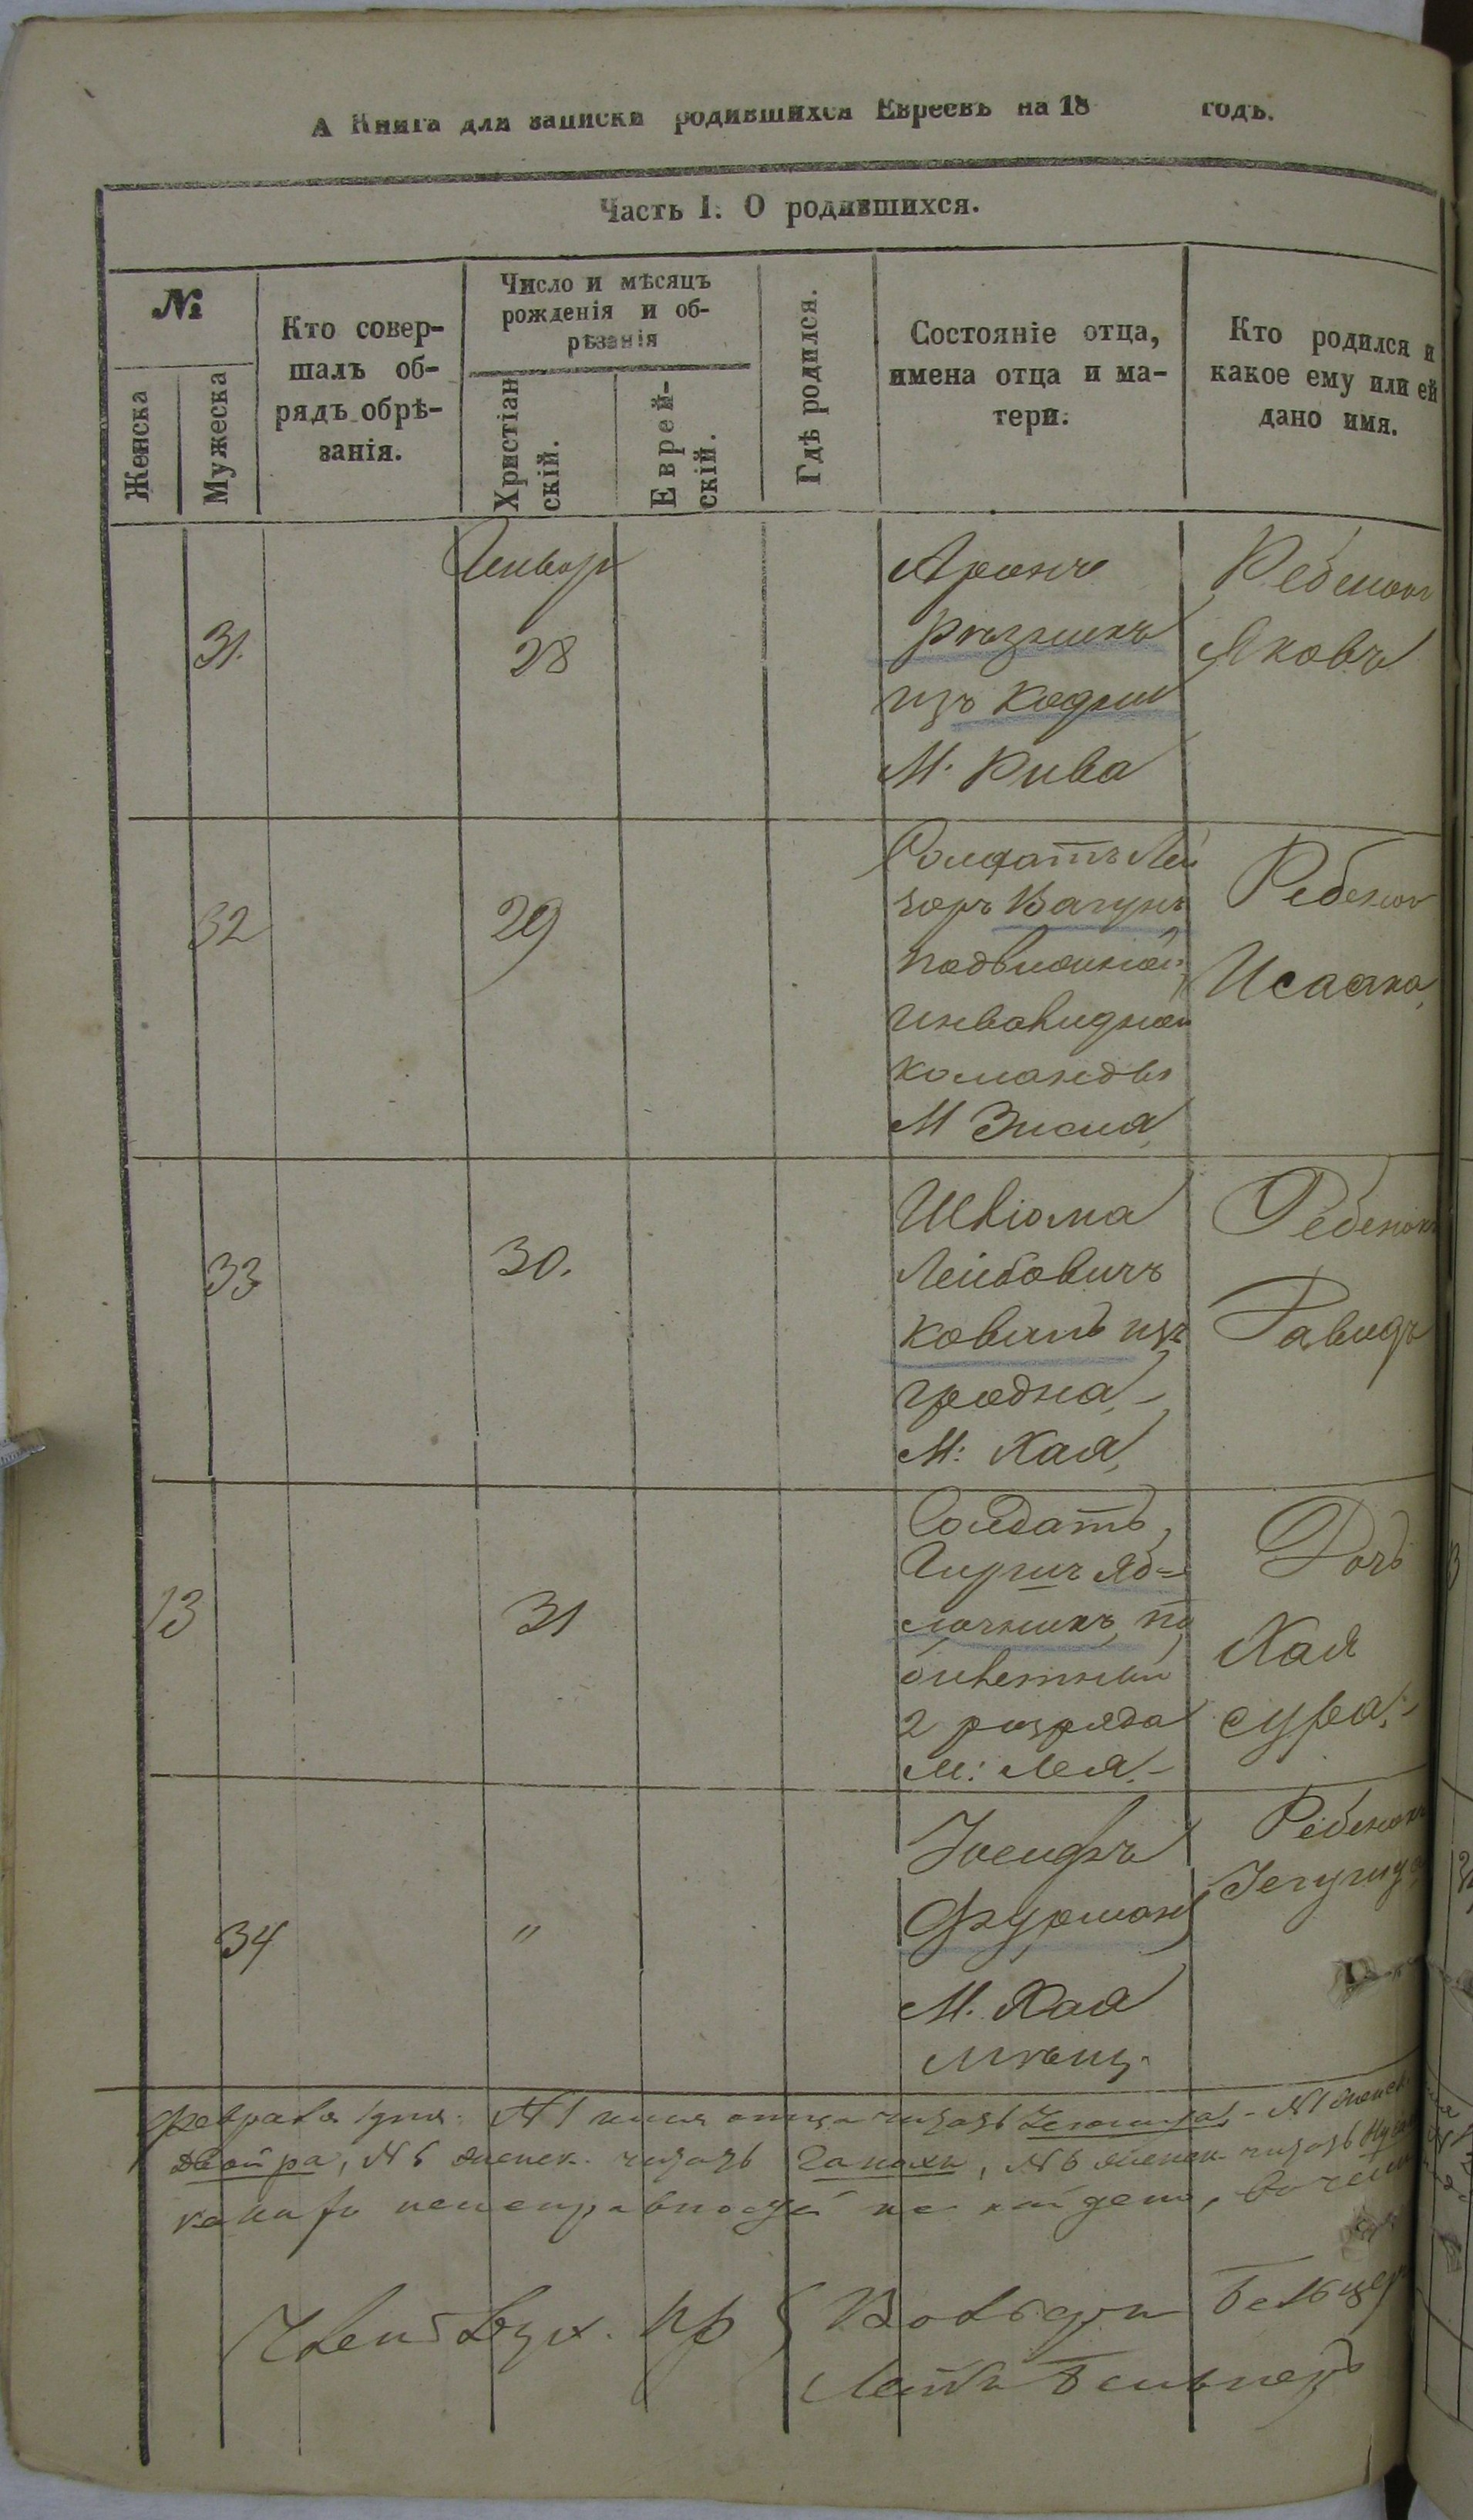 А Книга для записки родившихся Евреевъ на 18 годъ.
Часть I. О родившихся.
№
Женска
Мужеска
Кто совер-
шалъ об-
рядъ обрѣ-
занія.
Число и мѣсяцъ
рожденія и об-
рѣзанія
Христіан
скій.
Еврей-
скій.
Гдѣ родился.
Состояніе отца,
имена отца и ма-
тери.
Кто родился и
какое ему или ей
дано имя.
31.
Январ
28
Аронъ
Рѣзникъ
изъ Кодни
М. Рива
Ребенокъ
Яковъ
32
29
Солдатъ Лей
зоръ Вагунъ
подвижной
инвалидной
команды
М Зисля
Ребенок
Исаака
33
30.
Шліома
Лейбовичъ
Коваль изъ
Гродна
М: Хая
Ребенокъ
Давидъ
13
31
Солдатъ
Гиршъ Яб=
лочникъ, по
билетный
2 разряда
М: Лея.-
Дочь
Хая
Сура.-
34
"
Іосифъ
Фурман
М. Хая
мѣщ.
Ребенокъ
Іегуида
Февраля 1 дня. № 1 имя отца читать - № 1 женск.
Двойра, № 5 женск. читать , № 6 женск. читать
неисправностей не найдено, в чем
Член Дух. Пр { Вольф Бельцер
Лейба